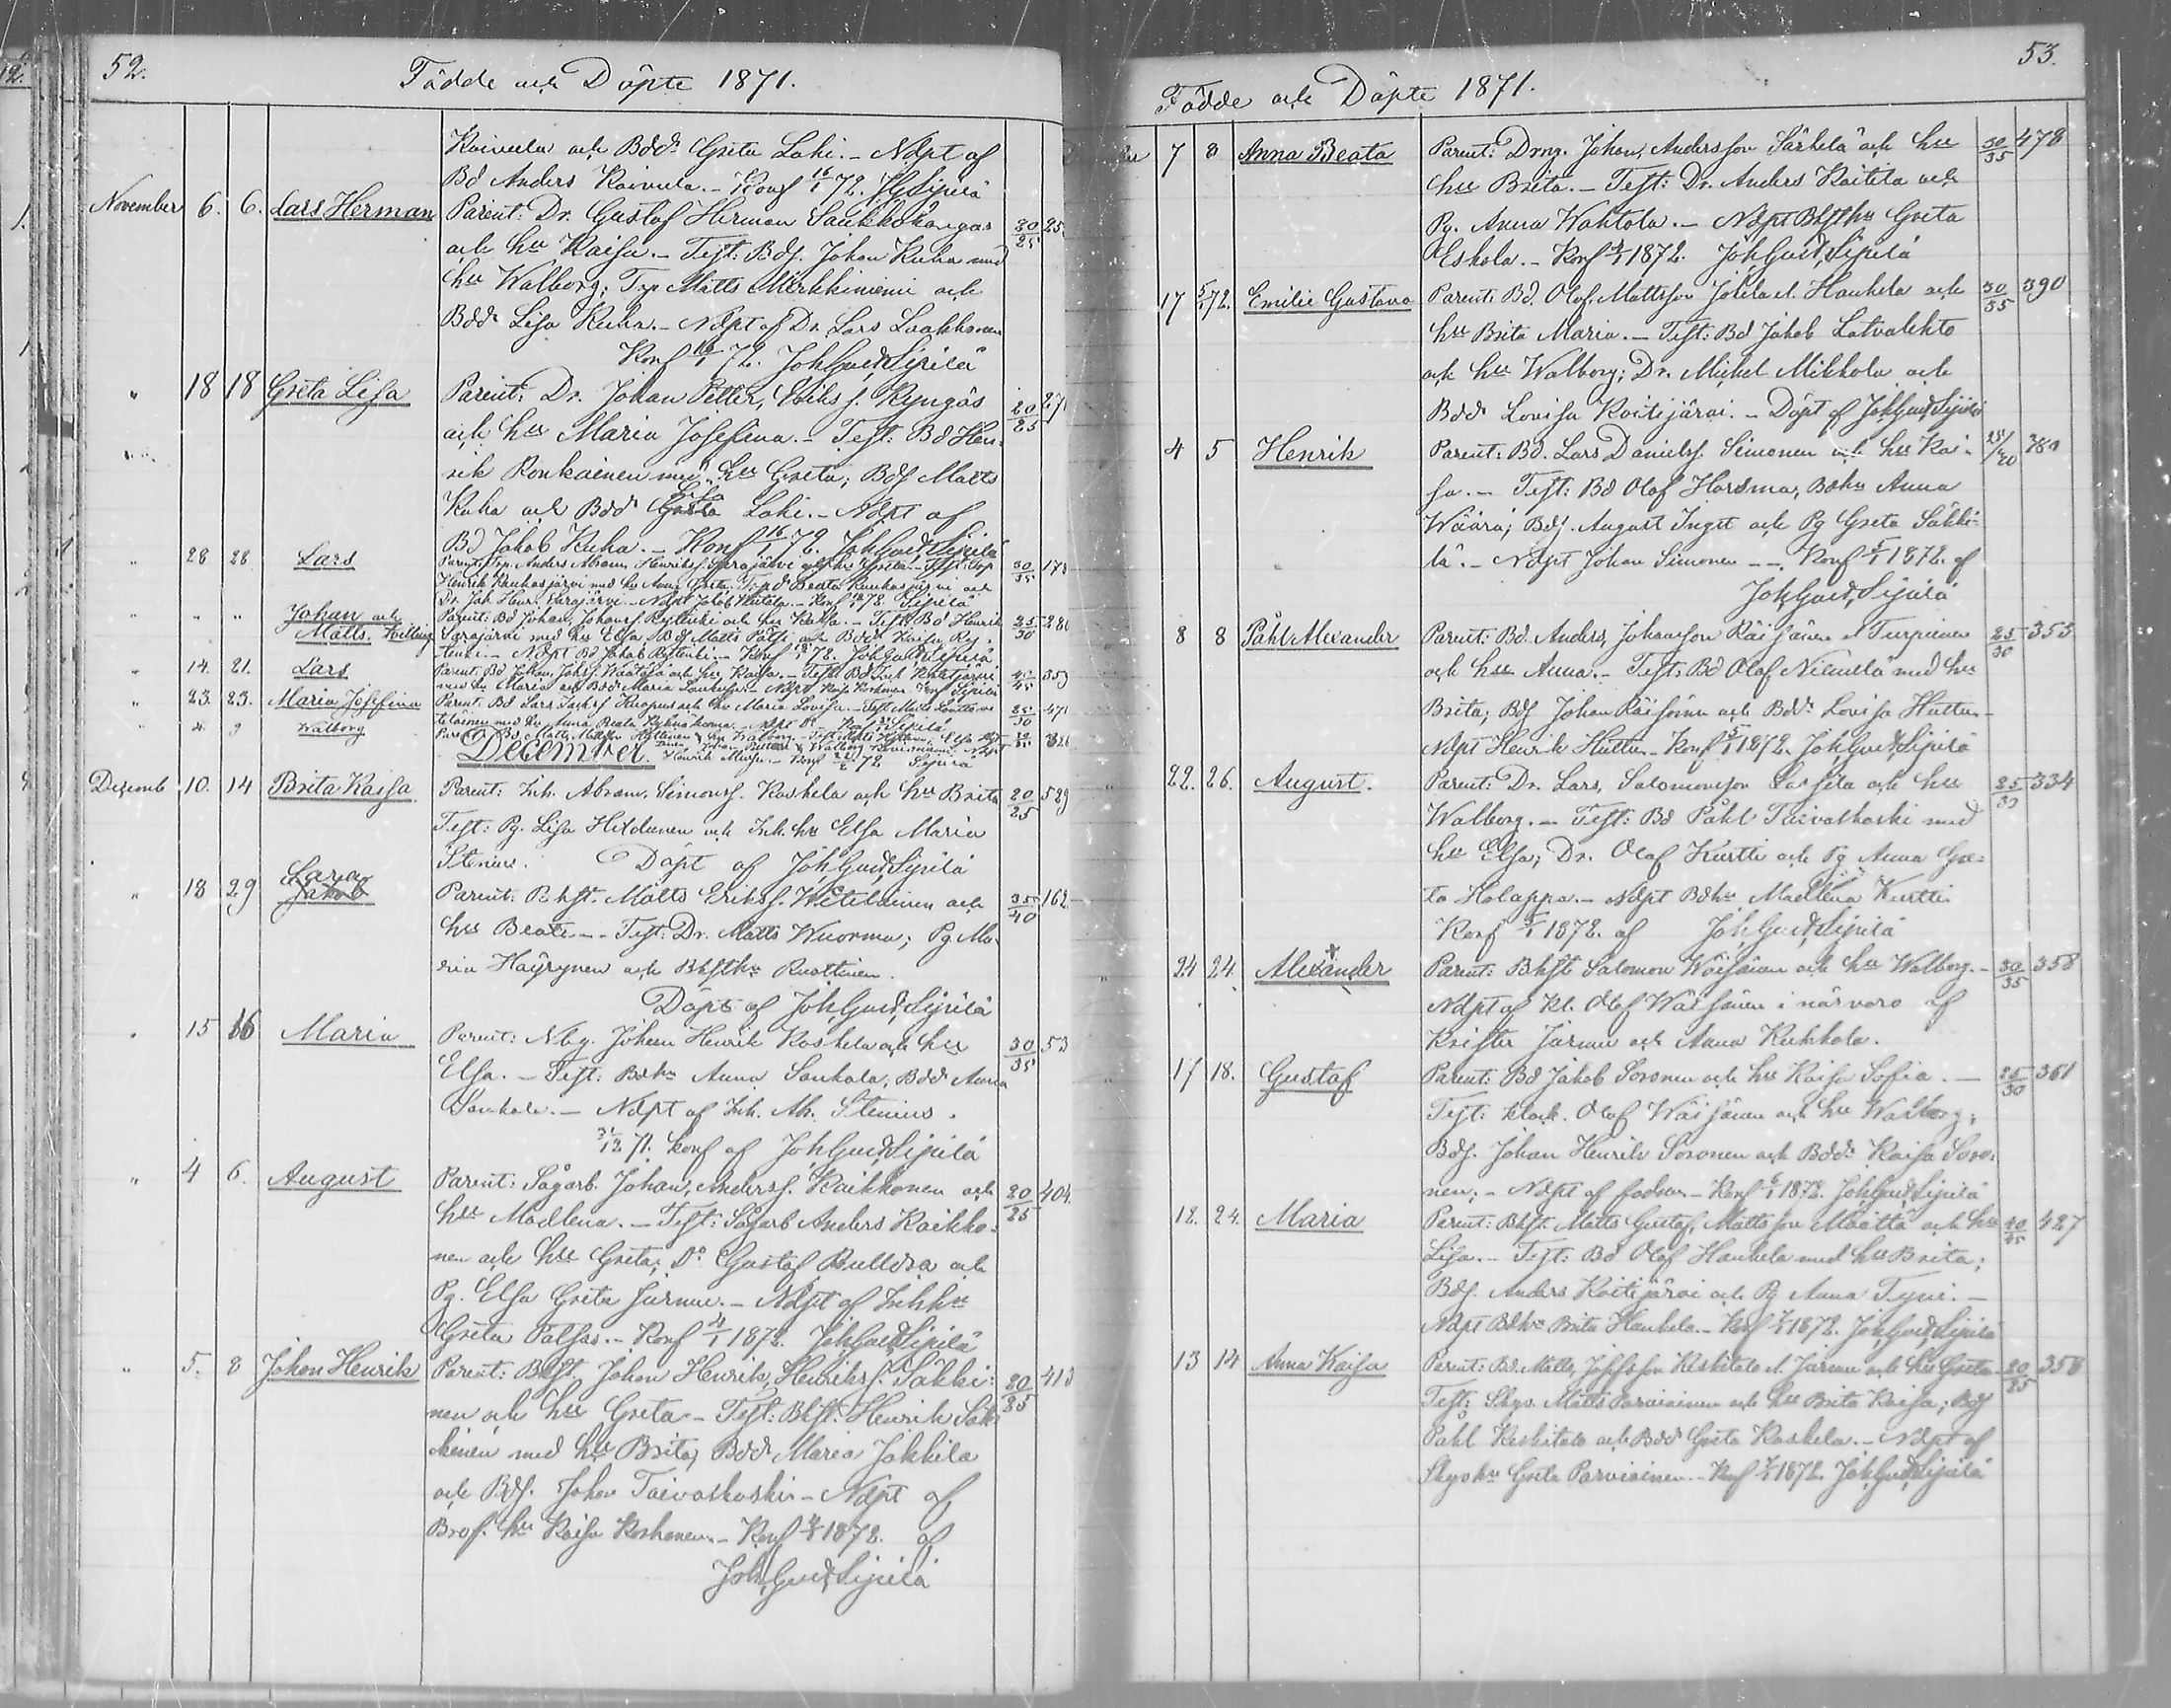 52.
Födde och Döpte 1871.
Koivula och Bdd. Greta Lahi. – Ndpt af
Bd Anders Koivula. – Konf 16/1 72. JGSipilä
November 6. 6. Lars Herman Parent: Dr. Gustaf Herman Saukkokangas 20/25 25
och hu Kaisa. – Test: Bds. Johan Kuha med
hu Walborg; Tp Matts Mikkinienie och
Bdd. Lisa Kuha. – Ndpt af Dr. Lars Laakkonen
Konf 16/1 72. Joh Gust Sipilä
" 18 18 Greta Lisa Parent: Dr. Johan Petter, Eriks s. Kyngäs 20/25 271
och hu Maria Josefina. – Test: Bd Hen-
rik Ronkainen med hu Greta; Bds Matts
Kuha och Bdd Lisa Lahi. – Ndpt af
Bd Jakob Kuha. – Konf 16/1 72. Joh Gust Sipilä
" 28 28 Lars Parent: Tp. Anders Abram Henrikss. Sarajärvi och hu Greta. – Test: Tp 30/35 178
Henrik Kaukasjärvi med hu Anna Greta, Tpd Beata Kaukasjärvi och
Dr. Joh. Henr. Sarajärvi. – Ndpt Jakob – Konf 72. Sipilä
" " " Johan och Parent: Bd Johan, Johanss. Rytinki och hu Kaisa. – Test: Bd Henrik 25/30 280
Matts. Tvilling Sarajärvi med hu Elsa, Bds Matts och Bdd Kaisa Ry-
tinki. – Ndpt Bd Jakob Rytinki. – Konf 72. Joh Gust Sipilä
" 14. 21. Lars Parent: Bd Johan, Johs s. och hu Kaisa. – Test: Bd 40/45 359
med hu Maria och Bdd Maria – Ndpt Kaisa Sipilä
" 23. 23. Maria Josefina Parent: Bd Lars och hu Maria Lovisa. – Test: Matts 25/30 471
med hu Anna Beata – Ndpt Sipilä
" 4. 9 Walborg Parent: Bd Matts, Mattsson Hyttinen & hu Walborg. – Test: Matts 30/35
December. Henrik – Konf 72 Sipilä
Decemb 10. 14 Brita Kaisa Parent: Inh. Abram, Simonss. Koskela och hu Brita 20/25 529
Test: Pg. Lisa Hildunen och Inh. hu Elsa Maria
Stenius. Döpt af Joh Gust Sipilä
" 18 29 Jakob Parent: Bhft. Matts Eriks s. Wetelainen och 35/40 162
hu Beata – Test: Dr. Matts Wuorma; Pg. Ma-
ria Häyrynen och Bhfthu Ruottinen.
Döpt af Joh Gust Sipilä
" 15 16 Maria Parent: Nbg. Johan Henrik Koskela och hu 30/35 53
Elsa. – Test: Bdhu Anna Sankala, Bdd Anna
Sankala. – Ndpt af Inh. Ah. Stenius.
31/12 71. konf af Joh Gust Sipilä
" 4 6. August Parent: Sågarb. Johan, Anderss. Kaikkonen och 20/25 404
hu Madlena. – Test: Sågarb Anders Kaikko-
nen och hu Greta; Do Gustaf Bulldra och
Pg. Elsa Greta Jurmu. – Ndpt af Inhhu
Greta Palsas. – Konf 4/1 1872. Joh Gust Sipilä
" 5. 8 Johan Henrik Parent: Bhft. Johan Henrik, Henriks s. Säkki- 80/85 413
nen och hu Greta. – Test: Bhft: Henrik Säk-
kinen med hu Brita; Bdd. Maria Jakkila
och Bds. Johan Taivalkoski – Ndpt af
Brof. hu Kaisa Koskonen. – Konf 4/1 1872. af
Joh Gust Sipilä
53.
Födde och Döpte 1871.
7 8 Anna Beata Parent: Drng. Johan, Andersson Särkelä och hu 30/35 478
hu Brita. – Test: Dr. Anders Kaitila och
Pg. Anna Wahtola. – Ndpt Bhfthu Greta
Eskola. – Konf 4/1 1872. Joh Gust Sipilä
17 5/1 72. Emilie Gustava Parent: Bd. Olof, Mattsson Jokela el. Haukela och 30/35 390
hu Brita Maria. – Test: Bd Jakob Latvalehto
och hu Walborg; Dr. Mickel Mikkola och
Bdd. Lovisa Koitijärvi. – Döpt af Joh Gust Sipilä
4 5 Henrik Parent: Bd. Lars Danielss. Simonen och hu Kai- 25/30 380
sa. – Test: Bd Olof Hardma, Bdhu Anna
Wäärä; Bds. August Ingst och Pg Greta Säkki-
lä. – Ndpt Johan Simonen – – Konf 5/1 1872. af
Joh Gust Sipilä
8 8 Påhl Alexander Parent: Bd. Anders, Johansson Räisänen el Turpeinen 25/30 353
och hu Anna. – Test: Bd Olof Niemelä med hu
Brita; Bds Johan Räisänen och Bdd. Lovisa Huttu –
Ndpt Henrik Huttu – Konf 5/1 1872. Joh Gust Sipilä
22. 26. August. Parent: Dr. Lars, Salomonsson Lassila och hu 25/30 334
Walborg. – Test: Bd Påhl Taivalkoski med
hu Elsa; Dr. Olof Kurtti och Pg Anna Gre-
ta Holappa. – Ndpt Bdhu Madlena Kurtti
Konf 5/1 1872. af Joh Gust Sipilä
24 24. Alexander Parent: Bhft Salomon Wäisänen och hu Walborg. – 30/35 358
Ndpt af Kl. Olof Wäisänen i närvaro af
Krister Jurmu och Anna Kukkola.
17 18. Gustaf Parent: Bd Jakob Soronen och hu Kaisa Sofia. – 25/30 361
Test: klock. Olof Wäisänen och hu Walborg;
Bds. Johan Henrik Soronen och Bdd. Kaisa Soro-
nen. – Ndpt af fadren. – Konf 6/1 1872. Joh Gust Sipilä
12. 24. Maria Parent: Bhft. Matts Gustaf, Mattsson Määttä och hu 40/45 427
Lisa. – Test: Bd Olof Haukela med hu Brita;
Bds. Anders Koitijärvi och Pg Anna Tyni. –
Ndpt Bdhu Brita Haukela. – Konf 7/1 1872. Joh Gust Sipilä
13 14 Anna Kaisa Parent: Bd. Matts, Josefsson Keskitalo el. Jurmu och hu Greta 20/25 356
Test: Skgv. Matts Parviainen och hu Brita Kaisa; Bds
Påhl Keskitalo och Bdd Greta Koskela. – Ndpt af
Skgvhu Greta Parviainen. – Konf 7/1 1872. Joh Gust Sipilä